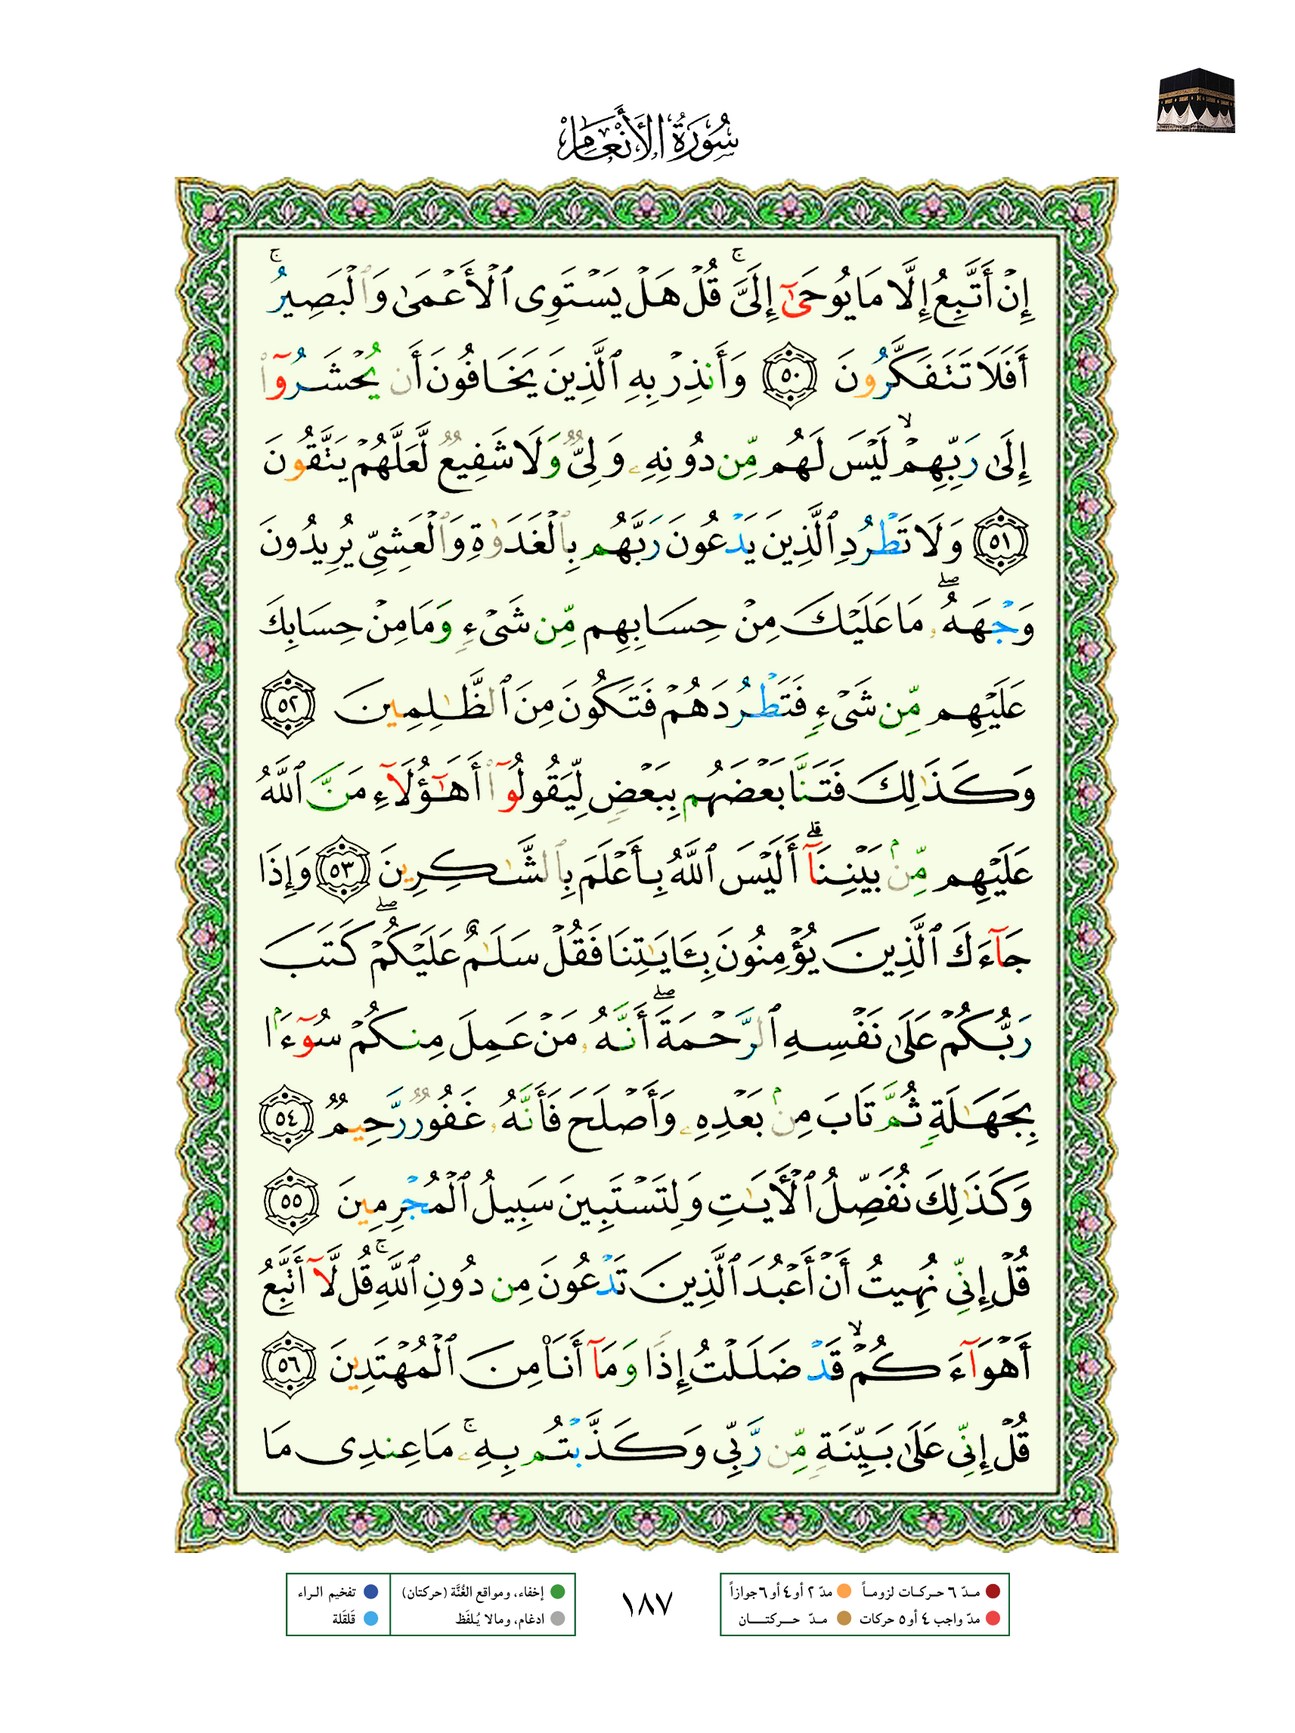 سُورَةُ الأَنْعَامِ
إِنْ أَتَّبِعُ إِلَّا مَا يُوحَىٰٓ إِلَىَّ ۚ قُلْ هَلْ يَسْتَوِى ٱلْأَعْمَىٰ وَٱلْبَصِيرُ ۚ
أَفَلَا تَتَفَكَّرُونَ ٥٠ وَأَنذِرْ بِهِ ٱلَّذِينَ يَخَافُونَ أَن يُحْشَرُوٓا۟
إِلَىٰ رَبِّهِمْ ۙ لَيْسَ لَهُم مِّن دُونِهِۦ وَلِىٌّ وَلَا شَفِيعٌ لَّعَلَّهُمْ يَتَّقُونَ
٥١ وَلَا تَطْرُدِ ٱلَّذِينَ يَدْعُونَ رَبَّهُم بِٱلْغَدَوٰةِ وَٱلْعَشِىِّ يُرِيدُونَ
وَجْهَهُۥ ۖ مَا عَلَيْكَ مِنْ حِسَابِهِم مِّن شَىْءٍ وَمَا مِنْ حِسَابِكَ
عَلَيْهِم مِّن شَىْءٍ فَتَطْرُدَهُمْ فَتَكُونَ مِنَ ٱلظَّٰلِمِينَ ٥٢
وَكَذَٰلِكَ فَتَنَّا بَعْضَهُم بِبَعْضٍ لِّيَقُولُوٓا۟ أَهَٰٓؤُلَآءِ مَنَّ ٱللَّهُ
عَلَيْهِم مِّنۢ بَيْنِنَآ ۗ أَلَيْسَ ٱللَّهُ بِأَعْلَمَ بِٱلشَّٰكِرِينَ ٥٣ وَإِذَا
جَآءَكَ ٱلَّذِينَ يُؤْمِنُونَ بِـَٔايَٰتِنَا فَقُلْ سَلَٰمٌ عَلَيْكُمْ ۖ كَتَبَ
رَبُّكُمْ عَلَىٰ نَفْسِهِ ٱلرَّحْمَةَ ۖ أَنَّهُۥ مَنْ عَمِلَ مِنكُمْ سُوٓءًۢا
بِجَهَٰلَةٍ ثُمَّ تَابَ مِنۢ بَعْدِهِۦ وَأَصْلَحَ فَأَنَّهُۥ غَفُورٌ رَّحِيمٌ ٥٤
وَكَذَٰلِكَ نُفَصِّلُ ٱلْأَيَٰتِ وَلِتَسْتَبِينَ سَبِيلُ ٱلْمُجْرِمِينَ ٥٥
قُلْ إِنِّى نُهِيتُ أَنْ أَعْبُدَ ٱلَّذِينَ تَدْعُونَ مِن دُونِ ٱللَّهِ ۚ قُل لَّآ أَتَّبِعُ
أَهْوَآءَكُمْ ۙ قَدْ ضَلَلْتُ إِذًا وَمَآ أَنَا۠ مِنَ ٱلْمُهْتَدِينَ ٥٦
قُلْ إِنِّى عَلَىٰ بَيِّنَةٍ مِّن رَّبِّى وَكَذَّبْتُم بِهِۦ ۚ مَا عِندِى مَا
مدّ ٦ حركات لزوماً مدّ ٢ أو٤ أو ٦ جوازاً
مدّ واجب ٤ أو ٥ حركات مدّ حركتان
١٨٧
إخفاء، ومواقع الغُنَّة (حركتان) تفخيم الراء
ادغام، ومالا يُلفَظ قلقلة